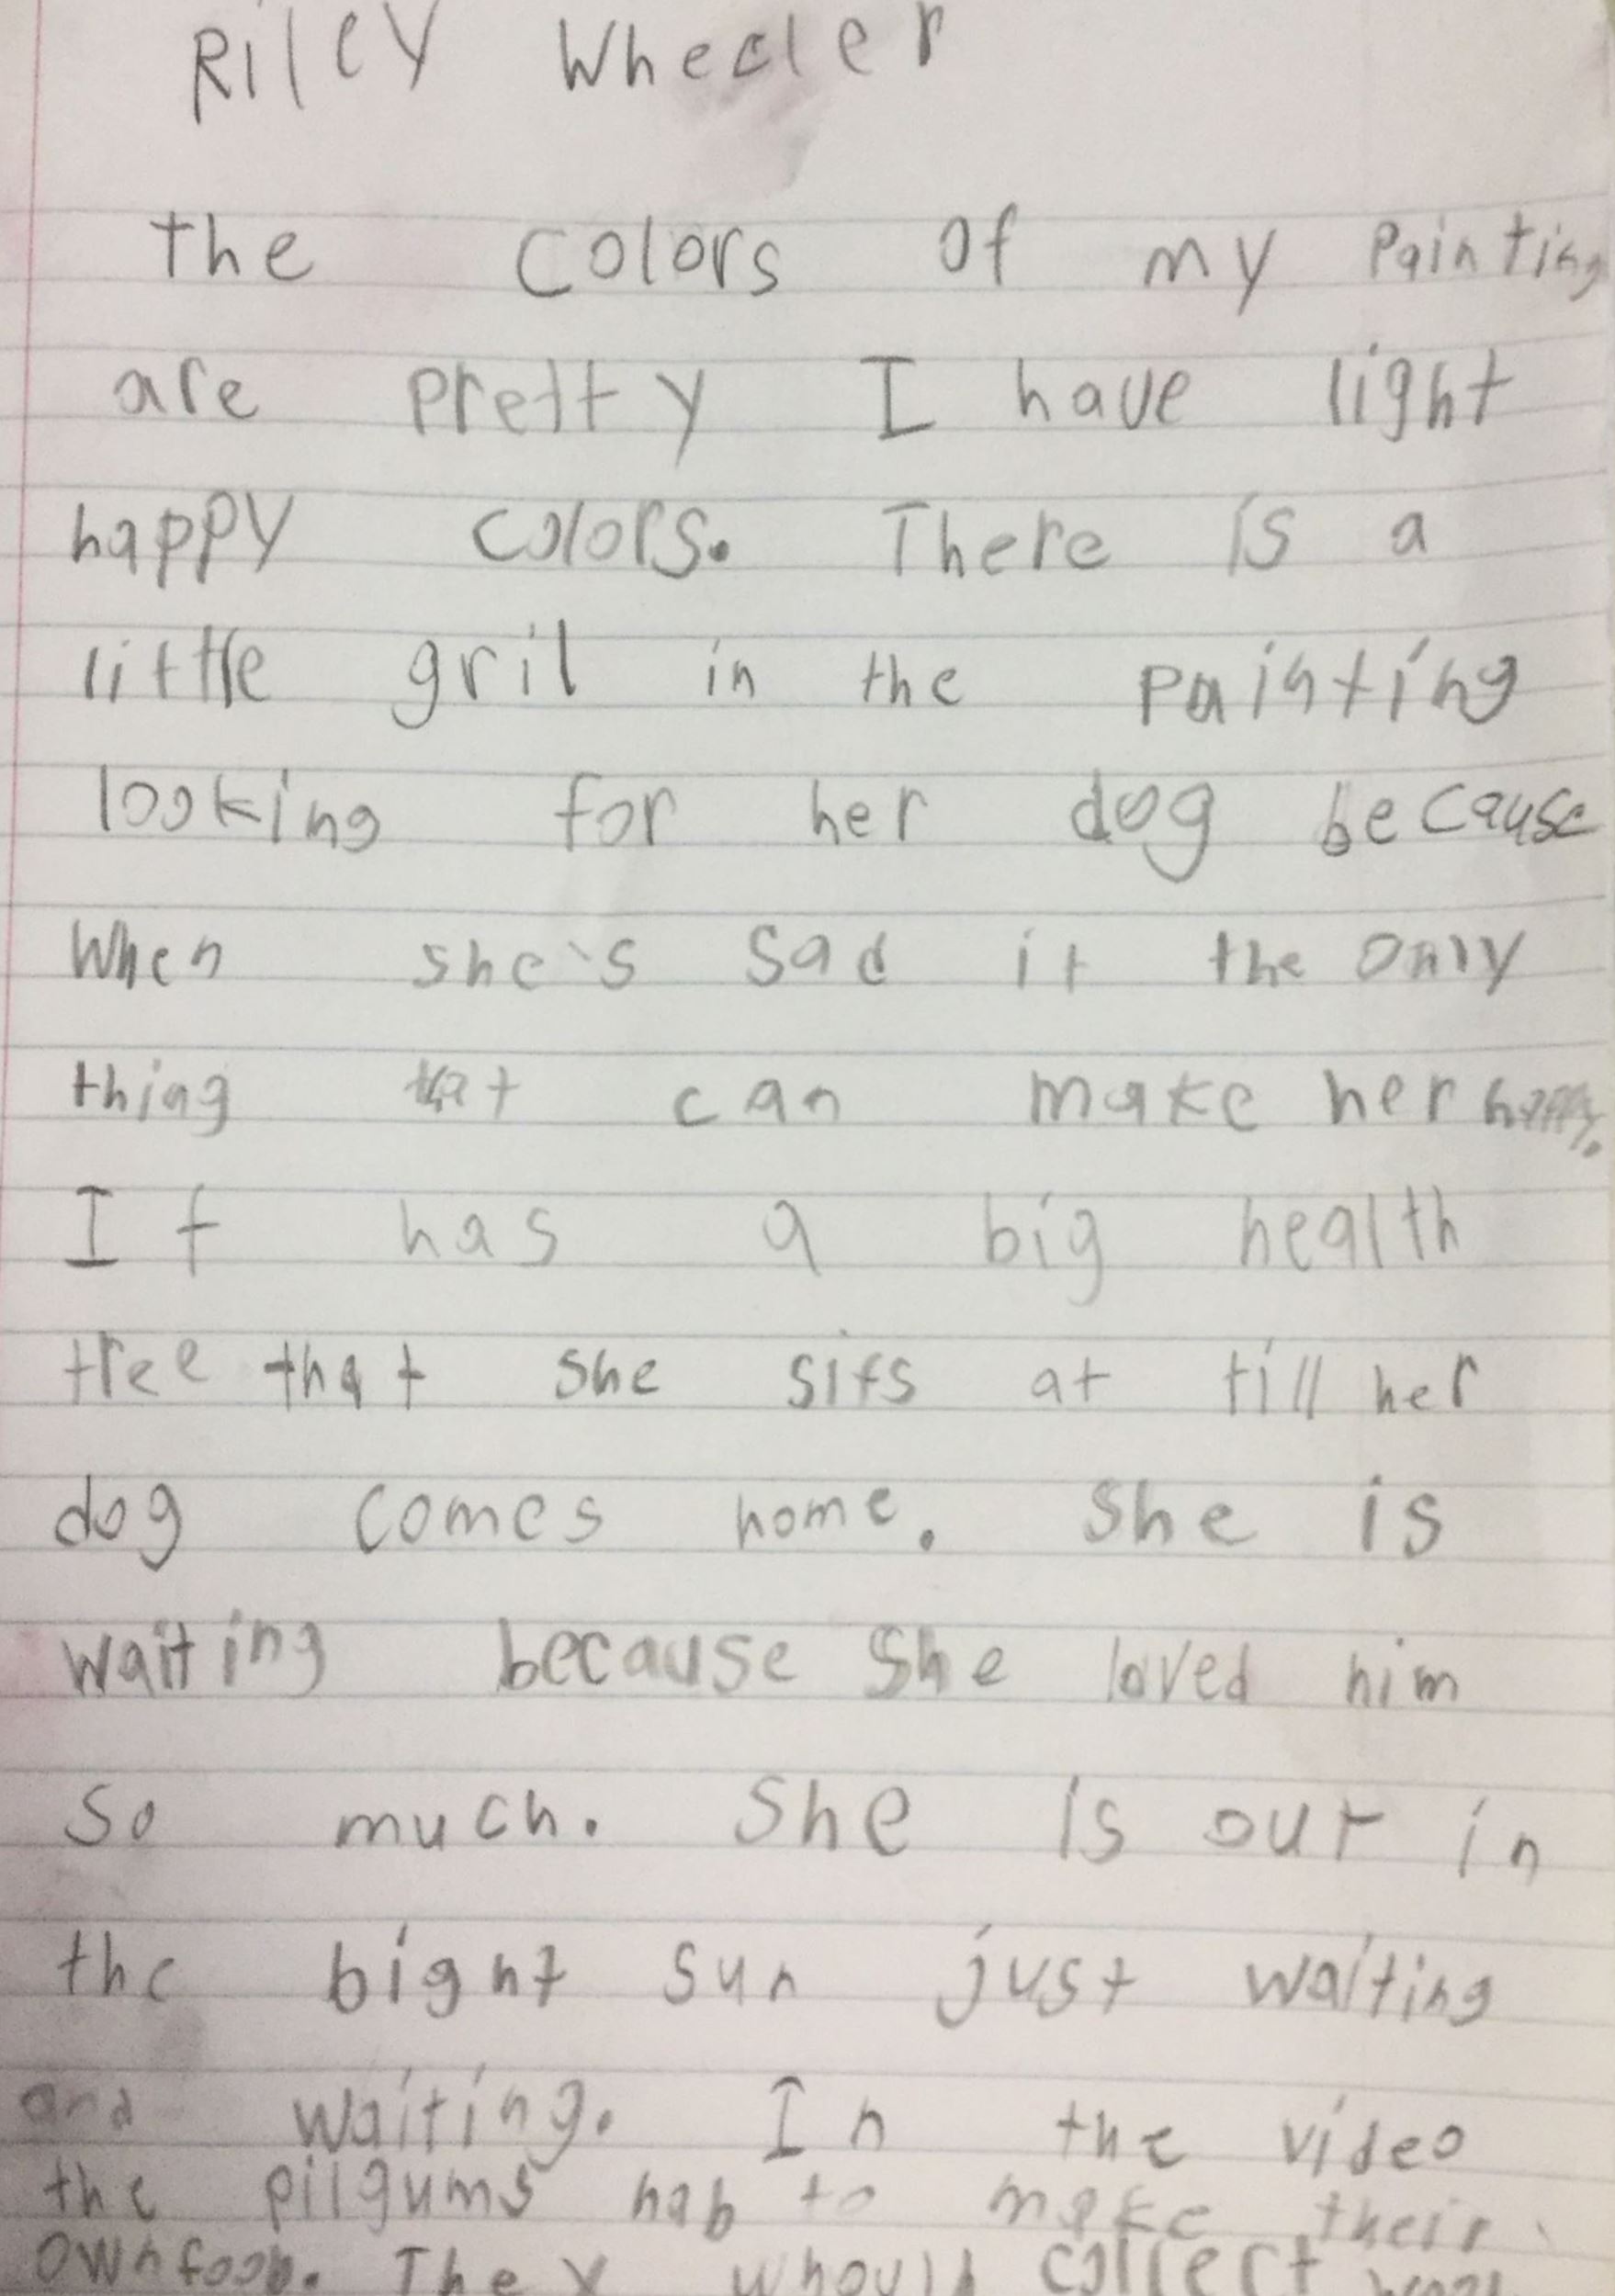 Riley Wheeler
the colors of my Painting
are pretty I have light
happy colors. There is a
little gril in the painting
looking for her dog because
When she's sad it the only
thing that can make her happy.
It has a big health
tree that she sits at till her
dog comes home. She is
waiting because she loved him
so much. She is out in
the bight sun just waiting
and waiting. In the video
the pilgums hab to make their
own foob. They whould collect